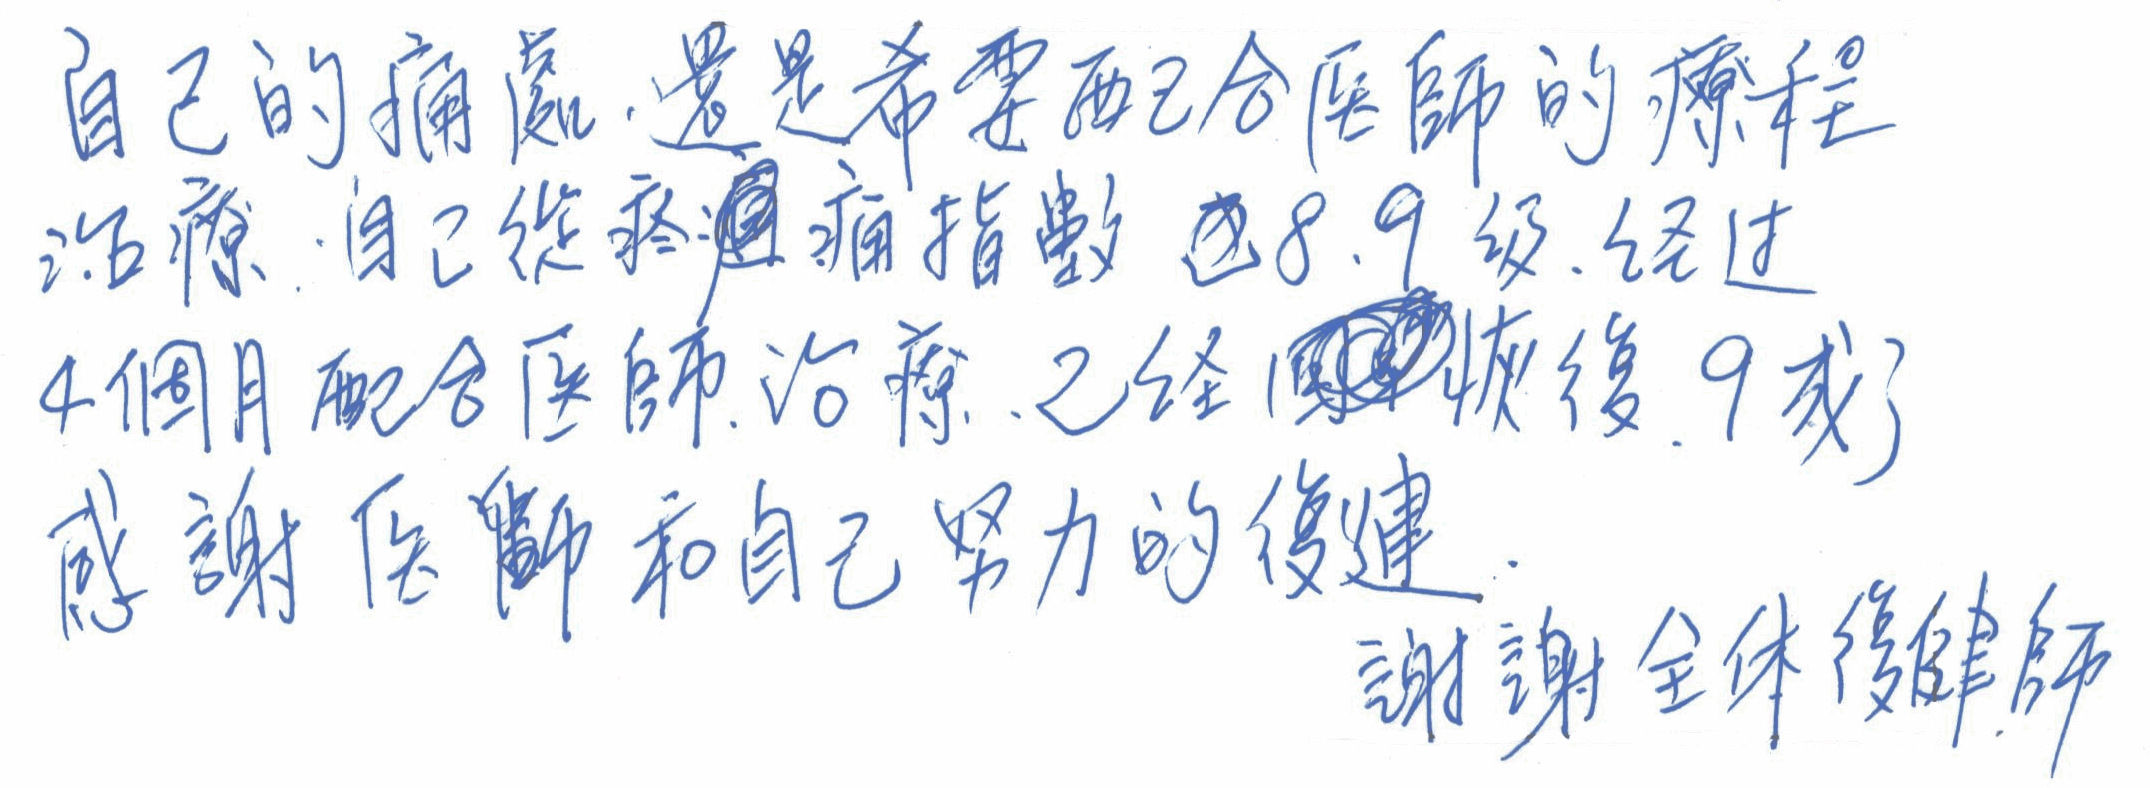 自己的痛處.還是希要配合医師的療程
治療.自己從疼痛指數 8.9级.经过
4個月配合医師.治療.己经恢復.9成了
感謝医師和自己努力的復建.
謝謝全体復健師